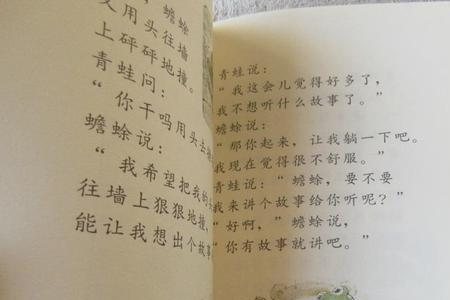 ，蟾蜍
又用头往墙
上砰砰地撞。
青蛙问：
“你干吗用头去
蟾蜍说：
“我希望把我的
往墙上狠狠地撞，
能让我想出个故事
青蛙说：
“我这会儿觉得好多了，
我不想听什么故事了。”
蟾蜍说：
“那你起来，让我躺一下吧。
我现在觉得很不舒服。”
青蛙说：“蟾蜍，要不要
我来讲个故事给你听呢？”
“好啊，”蟾蜍说，
“你有故事就讲吧。”